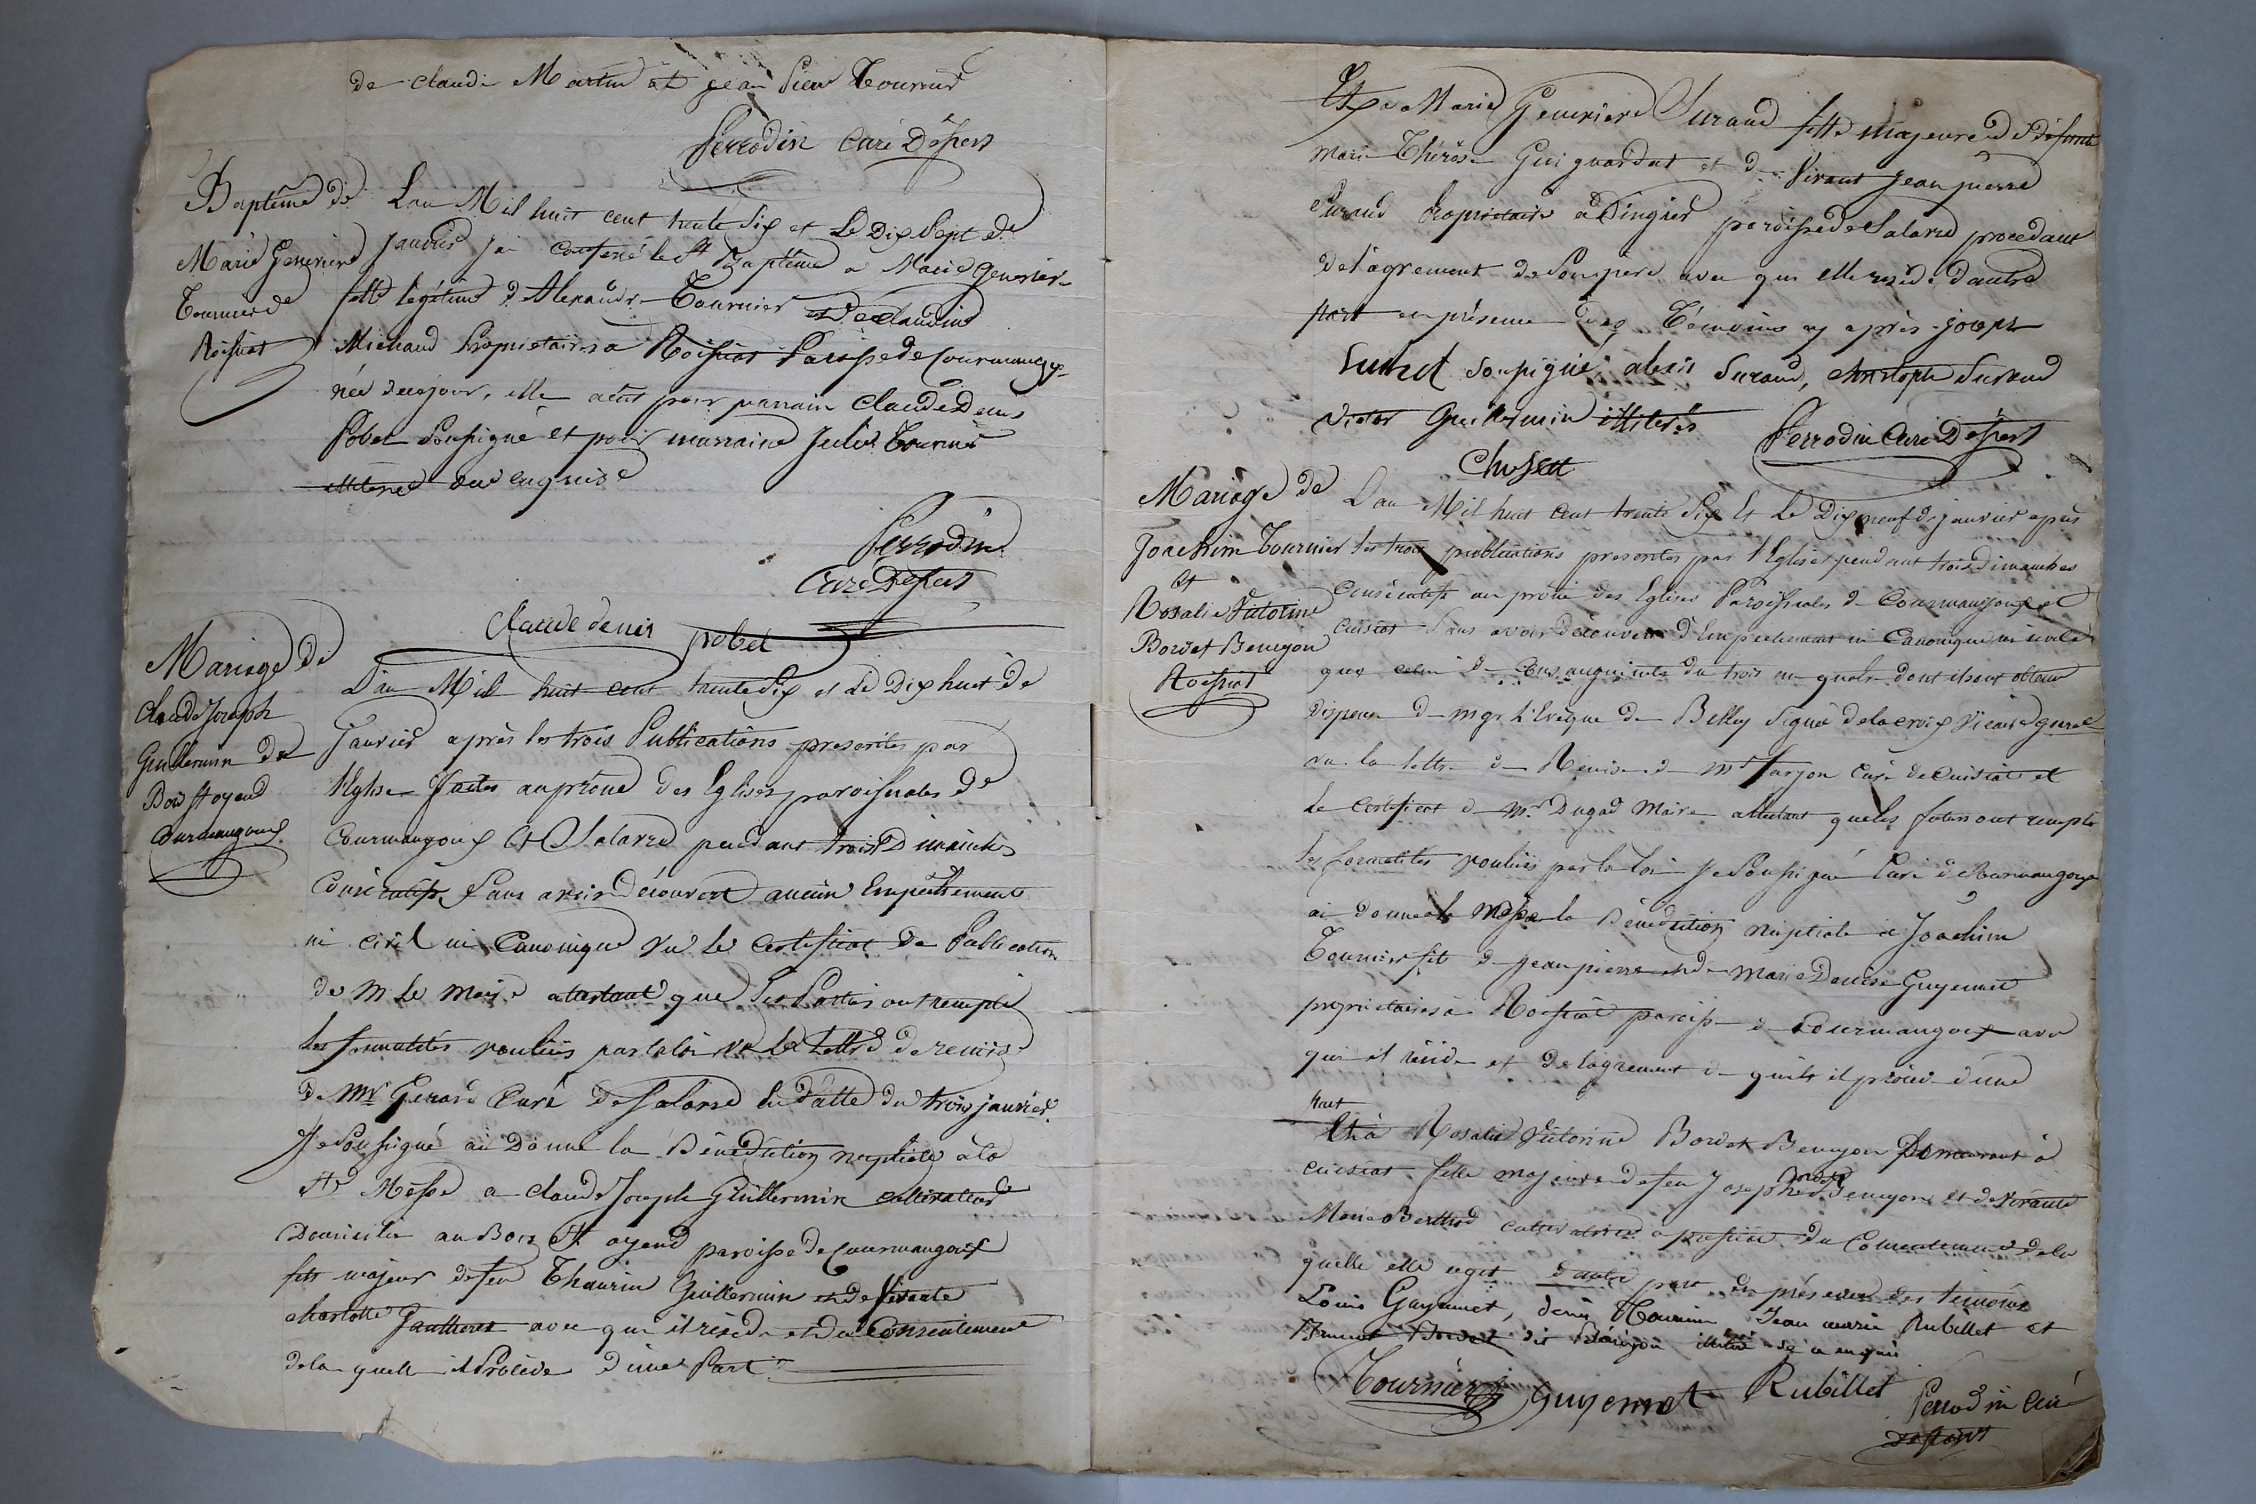 de claude Martin et jean Pierre Tournier
Perrodin Curé Dessert
Baptême de
Marie Genevieve
Tournier de
Roissiat
L'an Mil huit cent trente Six et Le Dix Sept de
janvier j'ai conferé le St Baptême a Marie Genevieve
fille légitime d'Alexandre Tournier et de Claudine
Michaud Propriétaires a Roissiat Paroisse de Courmangoux
née de ce jour, elle a eut pour parrain Claude Denis
Pobel Soussigné et pour marraine Julie Tournier
illiterée de ce enquise
Perrodin
Curé Dessert
Claude denis pobel
Mariage de
Claude Joseph
Guillermin de
Bois St oyend
Courmangoux
L'an Mil huit cent trente Six et Le Dix huit de
janvier après les trois Publications prescrites par
l'Eglise faites au prône des Eglises paroissiales de
Courmangoux et Salavre pendant trois Dimanches
Consécutifs Sans avoir Découvert aucun Empêchement
ni civil ni Canonique Vu le certificat de Publication
de M le Maire attestant que les Parties ont rempli
les formalités voulues par la loi Vu la Lettre de remise
de Mr Gerard Curé de Salavre En Datte du trois janvier
Je Soussigné ai Donné la Bénédiction nuptiale a la
Ste Messe a claude Joseph Guillermin cultivateur
Domicilié au Bois St oyend paroisse de Courmangoux
fils majeur de feu Thaurin Guillermin et de Vivante
charlotte avec qui il réside et du Consentement
de la quelle il Procède d'une Part
Et a Marie Genevieve Suraud fille Majeure de défunte
Marie Thérèse et de Vivant jean pierre
Suraud Propriétaire à Dingier paroisse de Salavre procedant
de l'agrement de Son père avec qui elle réside d'autre
part en présence des Témoins cy après joseph
Soussigné, alexis Suraud, christophe Suraud
Victor Guillermin illiterés Perrodin Curé Dessert
Mariage de
Joachim Tournier
et
Rosalie Victorine
Bordet Bennyon
Roissiat
L'an Mil huit cent trente Six Et Le Dix neuf de janvier après
les trois publications prescrites par l'Eglise pendant trois Dimanches
Consécutifs au prône des Eglises Paroissiales de Courmangoux et
Cuisiat Sans avoir découvert d'Empêchement ni Canonique ni civil
que celui de Consanguinité du trois au quatre dont ils ont obtenu
dispense de mgr L'Evêque de Belley Signé de la croix Vicaire général
vu la lettre de Remise de Mr curé de Cuisiat et
le certificat de Mr Dugad Maire attestant que les futurs ont rempli
les formalités voulues par la loi je Soussigné Curé de Courmangoux
ai donné a la Messe la Bénédiction nuptiale a Joachim
Tournier fils de jean pierre et de Marie Denise Guyennet
proprietaires a Roissiat paroisse de Courmangoux avec
qui il réside et de l'agrement de qui il procède d'une
part
Et à Rosalie Victorine Bordet Bennyon Demeurant à
Cuisiat fille majeure de feu Joseph Bordet Bennyon et de Vivante
Marie cultivatrice a du Consentement de la
quelle elle agit d'autre part en présence des témoins
Louis Guyennet, denis Tournier Jean marie Rubillet et
Bordet dit illitéré de ce enquis
Tournier Guyennet Rubillet Perrodin Curé
Dessert